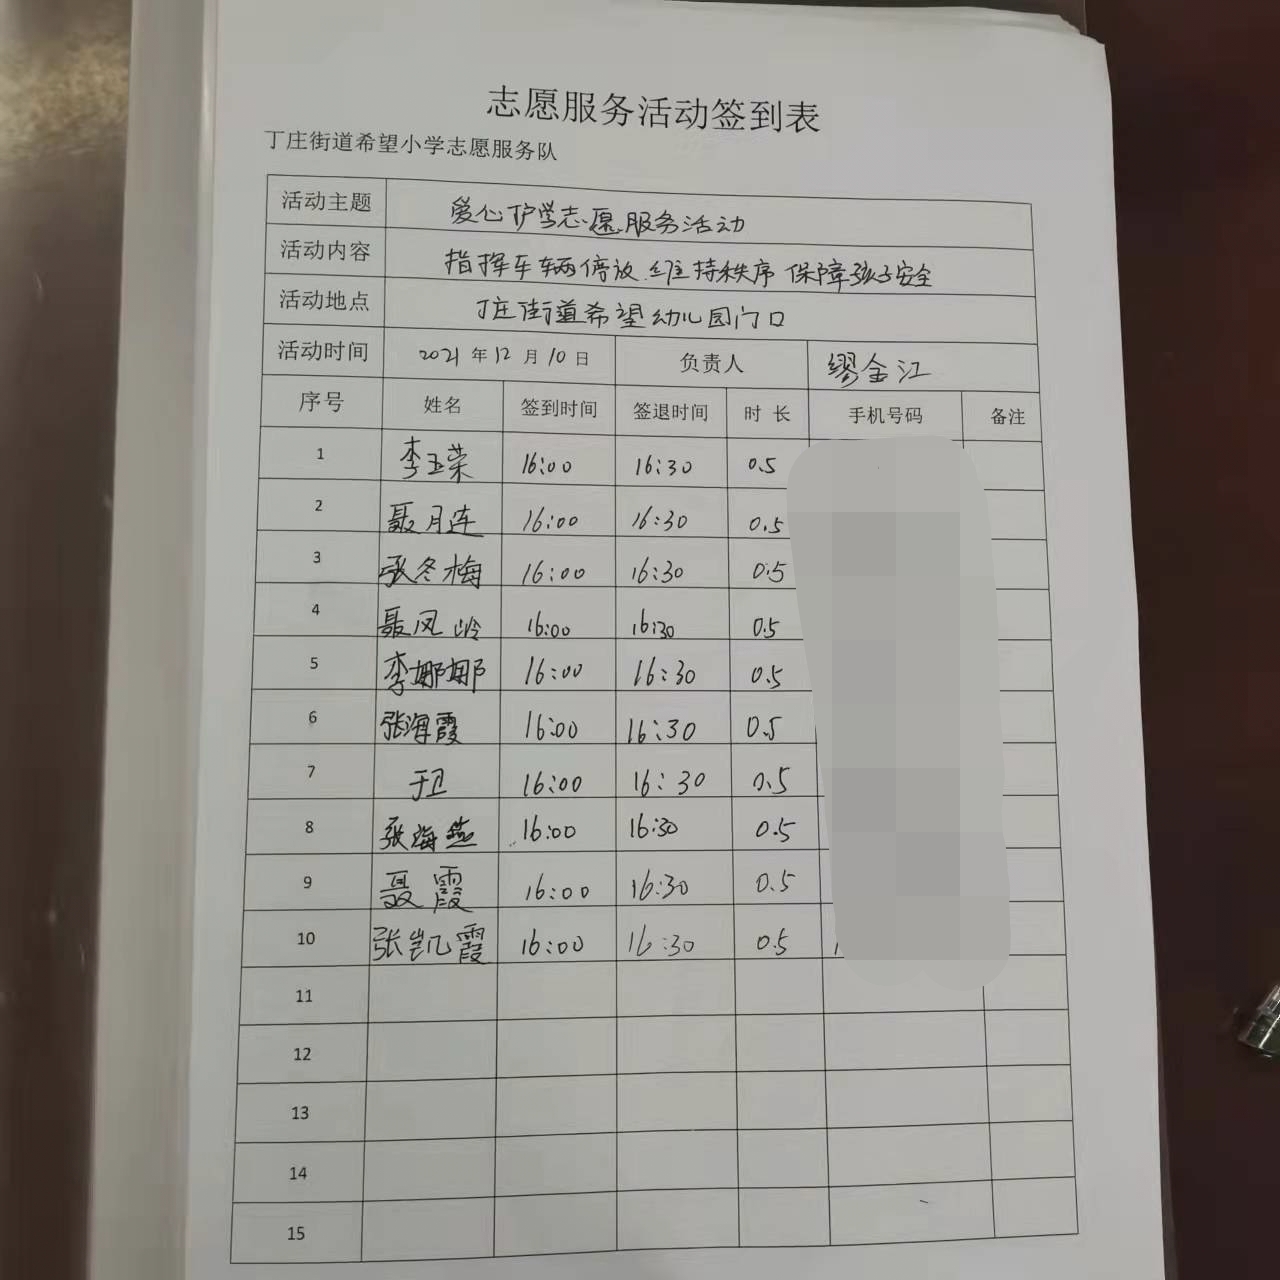 志愿服务活动签到表
丁庄街道希望小学志愿服务队
活动主题 爱心护学志愿服务活动
活动内容 指挥车辆停放 维持秩序 保障孩子安全
活动地点 丁庄街道希望幼儿园门口
活动时间 2021年12月10日 负责人 缪金江
序号 姓名 签到时间 签退时间 时长 手机号码 备注
1 李玉荣 16:00 16:30 0.5
2 聂月连 16:00 16:30 0.5
3 张冬梅 16:00 16:30 0.5
4 聂凤岭 16:00 16:30 0.5
5 李娜娜 16:00 16:30 0.5
6 张海霞 16:00 16:30 0.5
7 于卫 16:00 16:30 0.5
8 张海燕 16:00 16:30 0.5
9 聂霞 16:00 16:30 0.5
10 张凯霞 16:00 16:30 0.5
11
12
13
14
15